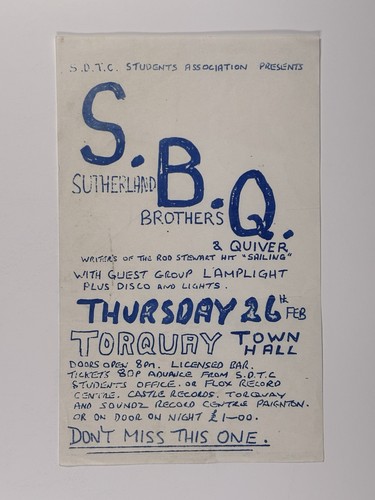 S.D.T.C. STUDENTS ASSOCIATION PRESENTS
S.B.Q.
SUTHERLAND
BROTHERS
& QUIVER
WRITER'S OF THE ROD STEWART HIT "SAILING"
WITH GUEST GROUP LAMPLIGHT
PLUS DISCO AND LIGHTS.
THURSDAY 26TH FEB
TORQUAY TOWN HALL
DOORS OPEN 8PM. LICENSED BAR.
TICKETS 80P ADVANCE FROM S.D.T.C
STUDENTS OFFICE. OR FLOX RECORD
CENTRE. CASTLE RECORDS. TORQUAY
AND SOUNDZ RECORD CENTRE PAIGNTON.
OR ON DOOR ON NIGHT £1-00.
DON'T MISS THIS ONE.